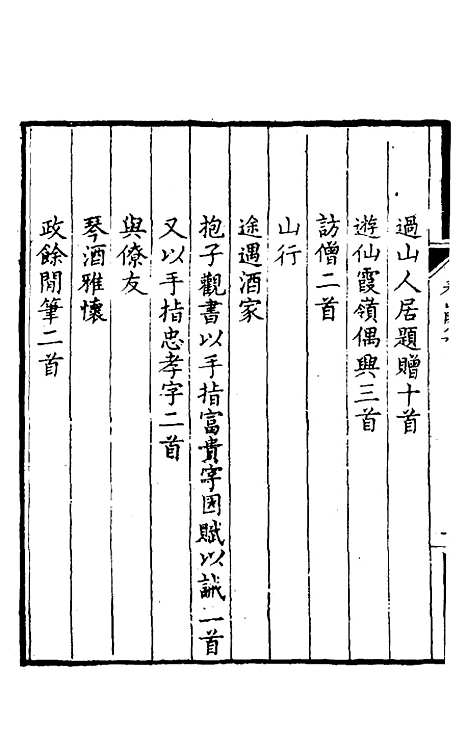 過山人居題贈十首
遊仙霞嶺偶興三首
訪僧二首
山行
途遇酒家
抱子觀書以手指富貴字因賦以誡一首
又以手指忠孝字二首
與僚友
琴酒雅懷
政餘閒筆二首